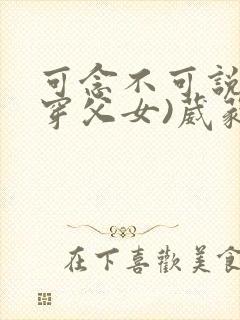 可念不可説
穿父女)葳蕤
在下喜歡美食